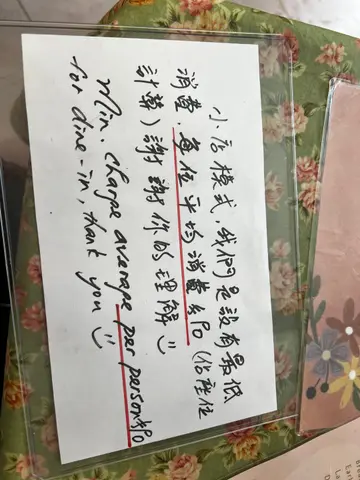 小店模式,我們是設有最低
消費,每位平均消費$90 (佔座位
計算) 謝謝你的理解
Min. charge average per person $90
for dine-in, thank you